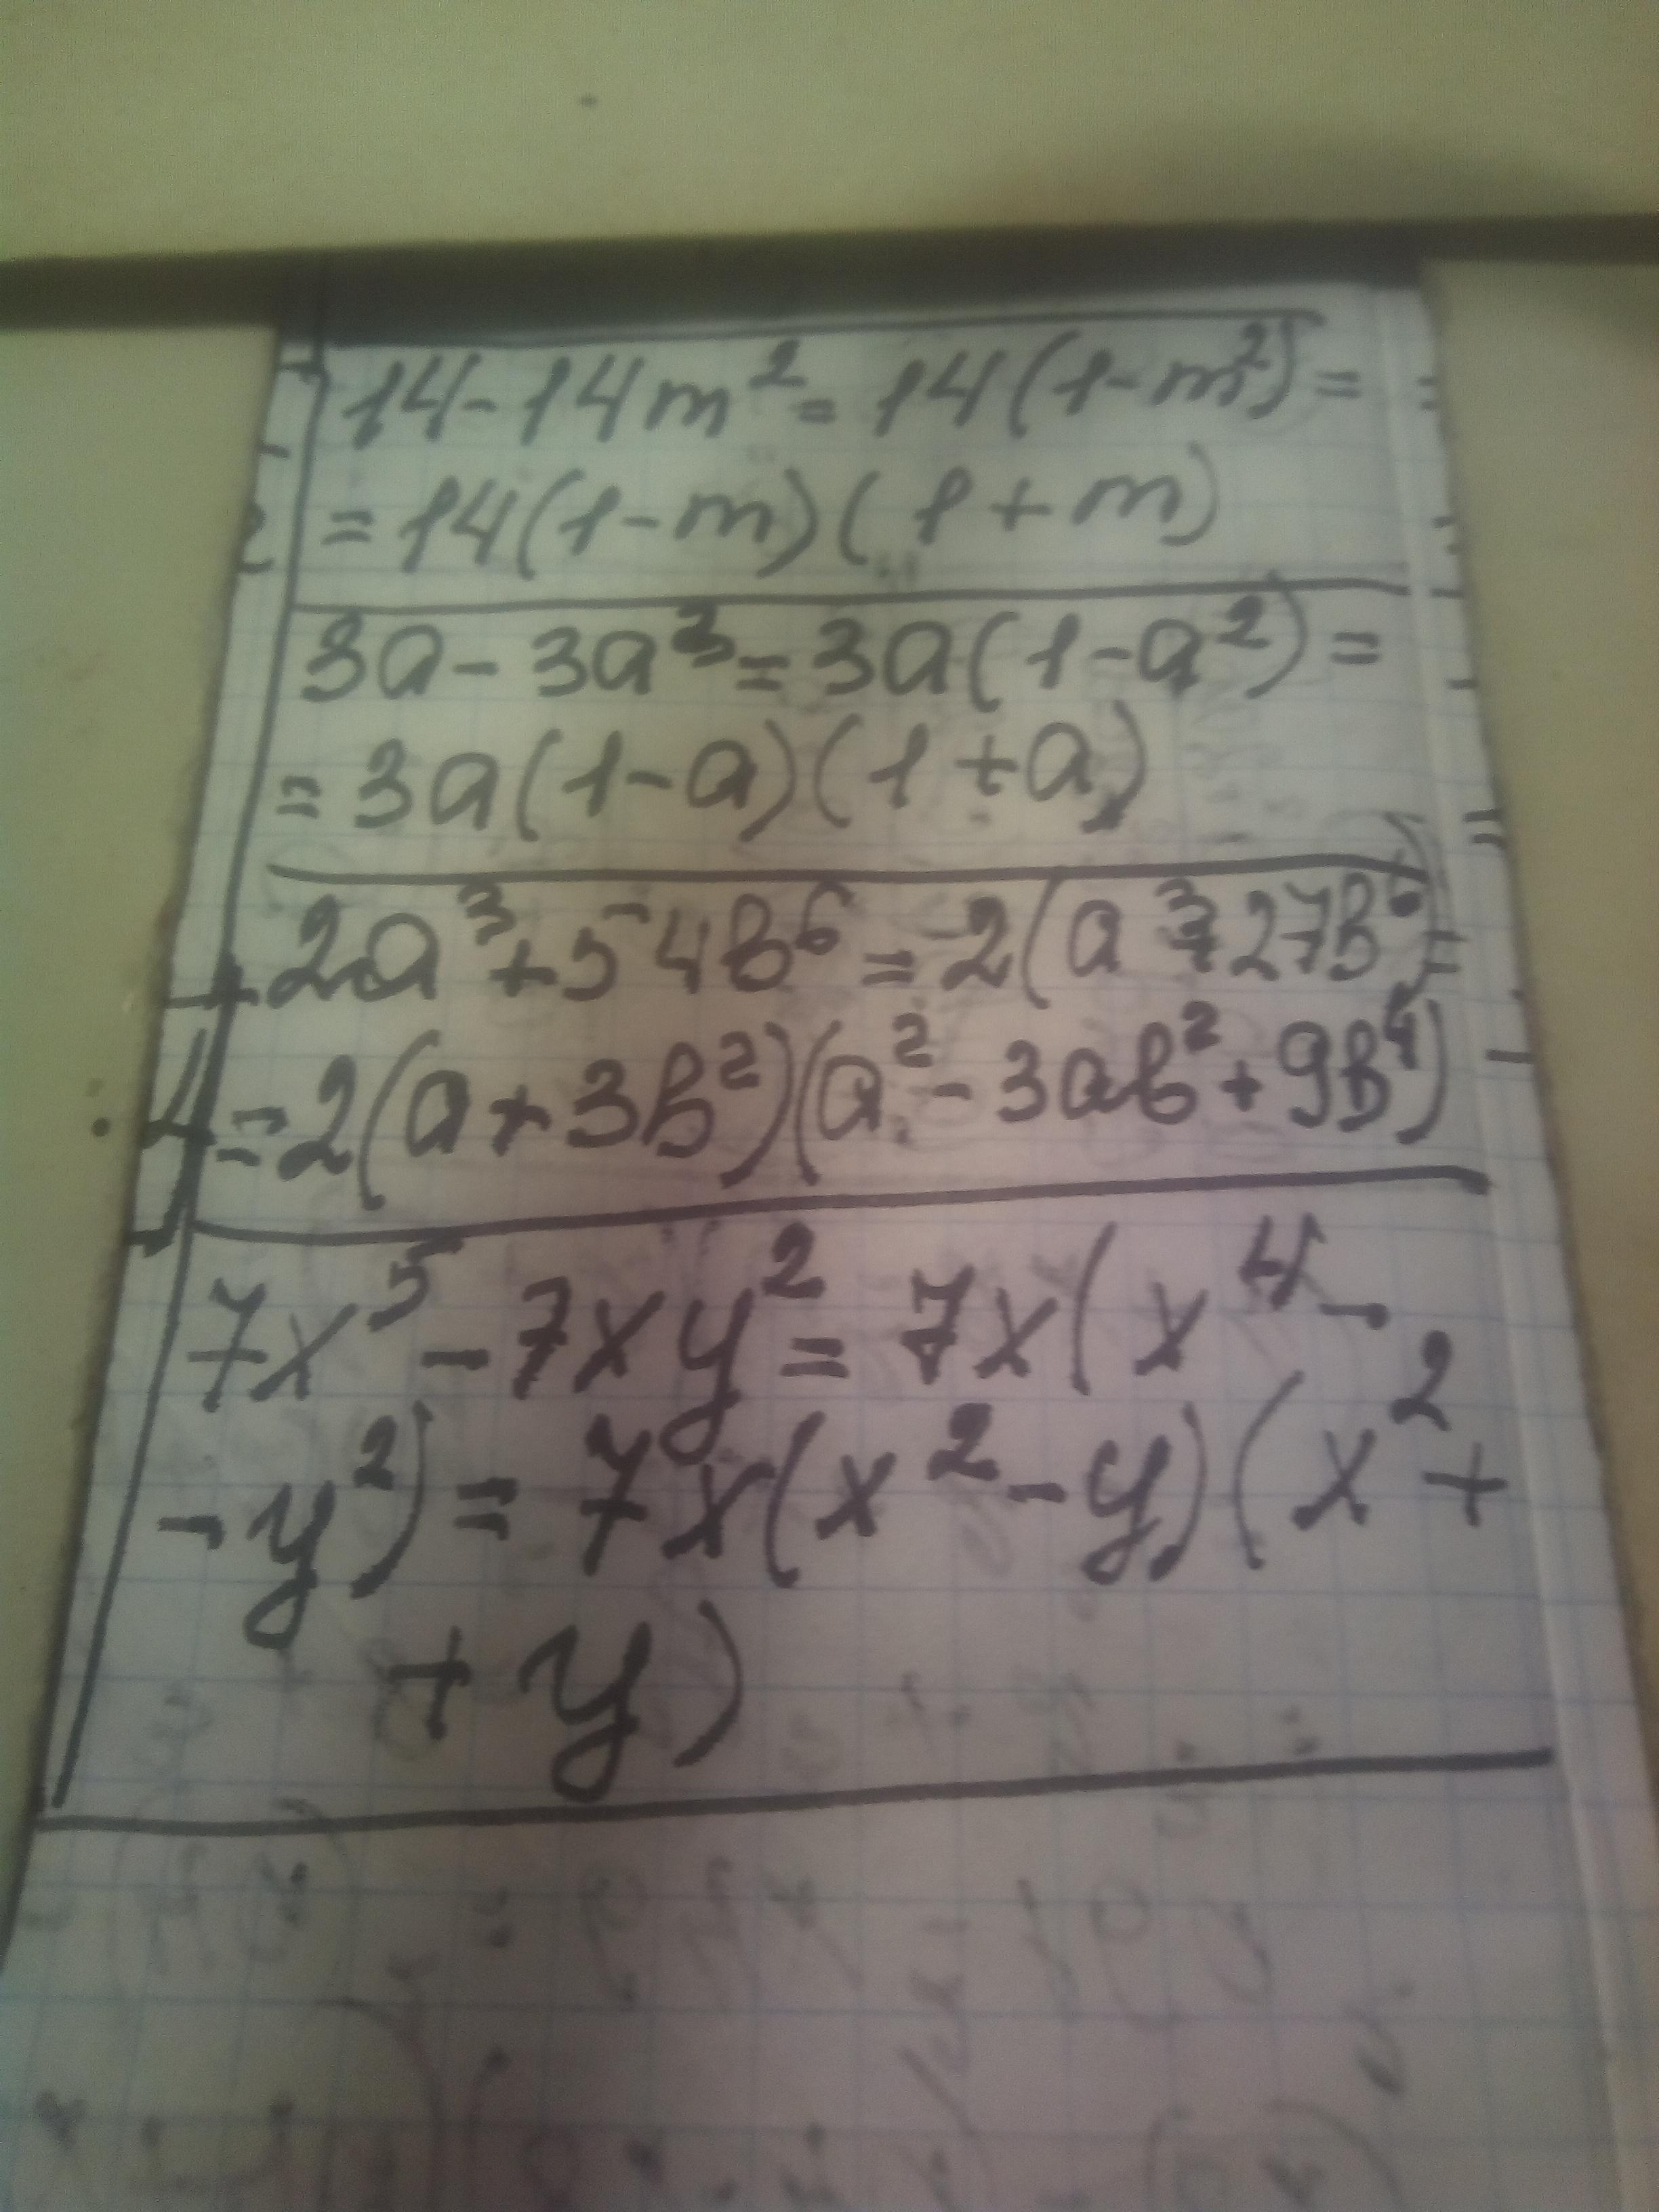 14-14m²=14(1-m²)=
=14(1-m)(1+m)
3a-3a³=3a(1-a²)=
=3a(1-a)(1+a)
2a³+54b⁶=2(a³+27b⁶)=
=2(a+3b²)(a²-3ab²+9b⁴)
7x⁵-7xy²=7x(x⁴-
-y²)=7x(x²-y)(x²+
+y)